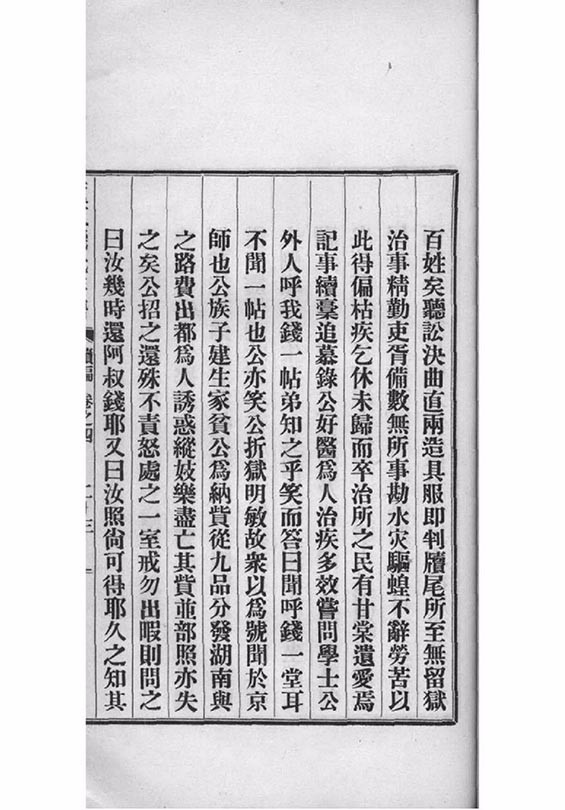 百姓矣聽訟決曲直兩造具服即判牘尾所至無留獄
治事精勤吏胥備數無所事勘水灾驅蝗不辭勞苦以
此得偏枯疾乞休未歸而卒治所之民有甘棠遺愛焉
記事續稾追慕錄公好醫爲人治疾多效嘗問學士公
外人呼我錢一帖弟知之乎笑而答曰聞呼錢一堂耳
不聞一帖也公亦笑公折獄明敏故衆以爲號聞於京
師也公族子建生家貧公爲納貲從九品分發湖南與
之路費出都爲人誘惑縱妓樂盡亡其貲並部照亦失
之矣公招之還殊不責怒處之一室戒勿出暇則問之
曰汝幾時還阿叔錢耶又曰汝照尙可得耶久之知其
續編 卷之四